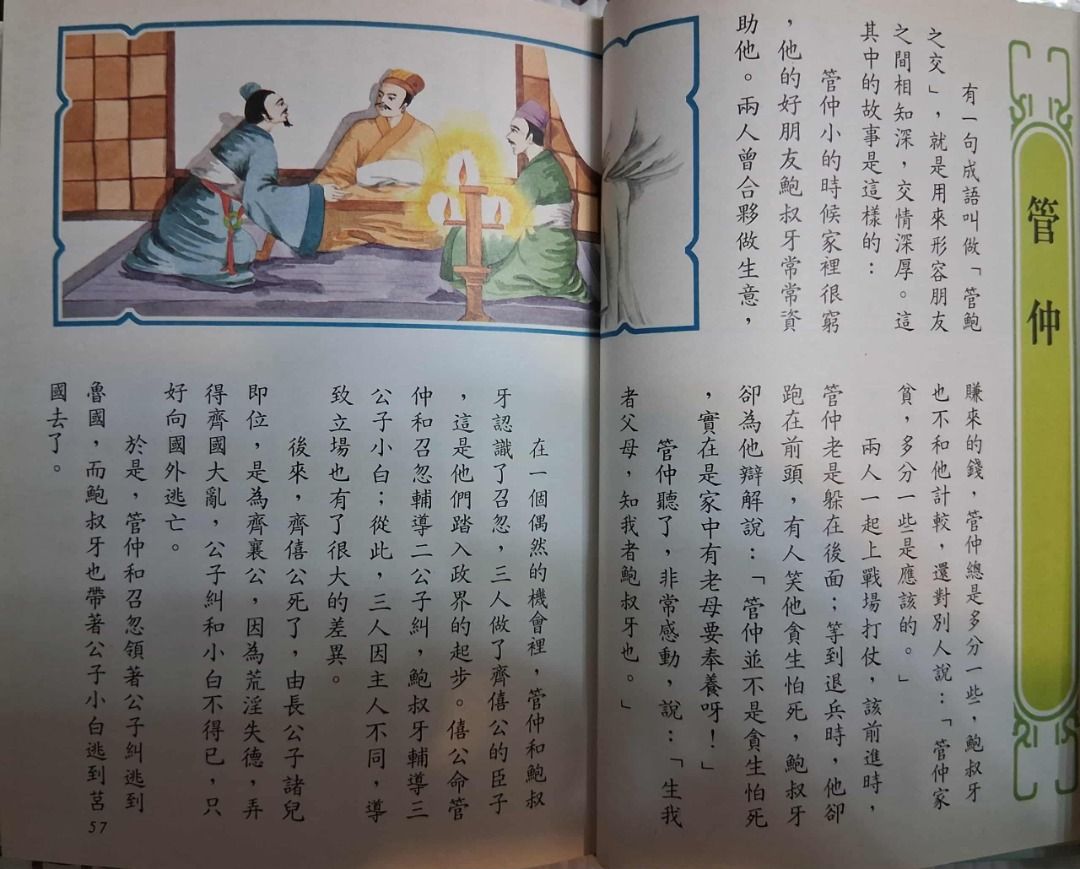 管仲
有一句成語叫做「管鮑
之交」，就是用來形容朋友
之間相知深，交情深厚。這
其中的故事是這樣的：
管仲小的時候家裡很窮
，他的好朋友鮑叔牙常常資
助他。兩人曾合夥做生意，
賺來的錢，管仲總是多分一些，鮑叔牙
也不和他計較，還對別人說：「管仲家
貧，多分一些是應該的。」
兩人一起上戰場打仗，該前進時，
管仲老是躲在後面；等到退兵時，他卻
跑在前頭，有人笑他貪生怕死，鮑叔牙
卻為他辯解說：「管仲並不是貪生怕死
，實在是家中有老母要奉養呀！」
管仲聽了，非常感動，說：「生我
者父母，知我者鮑叔牙也。」
在一個偶然的機會裡，管仲和鮑叔
牙認識了召忽，三人做了齊僖公的臣子
，這是他們踏入政界的起步。僖公命管
仲和召忽輔導二公子糾，鮑叔牙輔導三
公子小白；從此，三人因主人不同，導
致立場也有了很大的差異。
後來，齊僖公死了，由長公子諸兒
即位，是為齊襄公，因為荒淫失德，弄
得齊國大亂，公子糾和小白不得已，只
好向國外逃亡。
於是，管仲和召忽領著公子糾逃到
魯國，而鮑叔牙也帶著公子小白逃到莒
國去了。
57